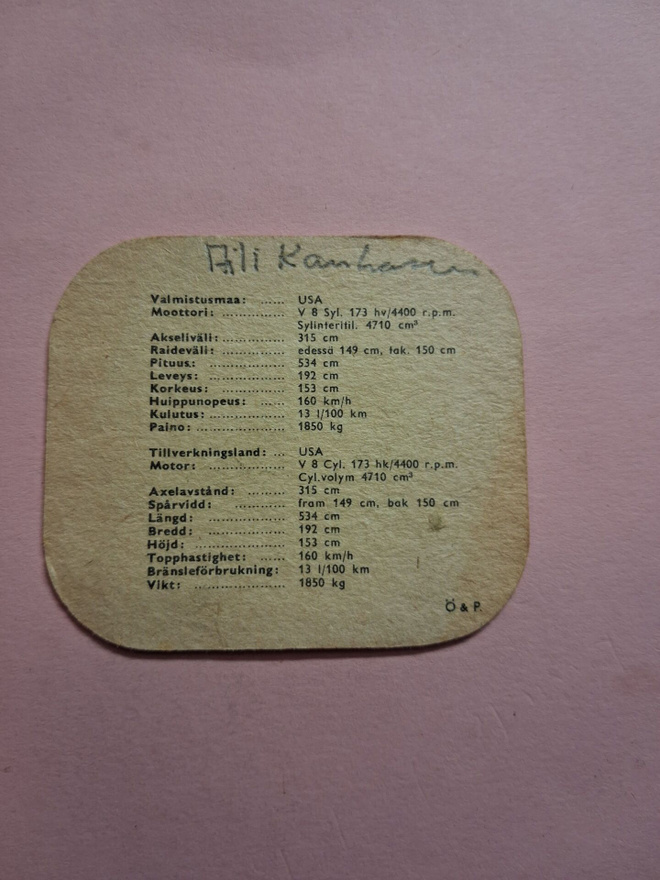 Aili Kanhasen
Valmistusmaa: ...... USA
Moottori: ................ V 8 Syl. 173 hv/4400 r.p.m.
Sylinteritil. 4710 cm³
Akseliväli: ................ 315 cm
Raideväli: ................ edessä 149 cm, tak. 150 cm
Pituus: .................... 534 cm
Leveys: .................... 192 cm
Korkeus: .................. 153 cm
Huippunopeus: ...... 160 km/h
Kulutus: .................... 13 l/100 km
Paino: ...................... 1850 kg
Tillverkningsland: ... USA
Motor: .................... V 8 Cyl. 173 hk/4400 r.p.m.
Cyl.volym 4710 cm³
Axelavstånd: ......... 315 cm
Spårvidd: ............ fram 149 cm, bak 150 cm
Längd: .................... 534 cm
Bredd: .................... 192 cm
Höjd: ...................... 153 cm
Topphastighet: ...... 160 km/h
Bränsleförbrukning: 13 l/100 km
Vikt: ...................... 1850 kg
Ö & P.